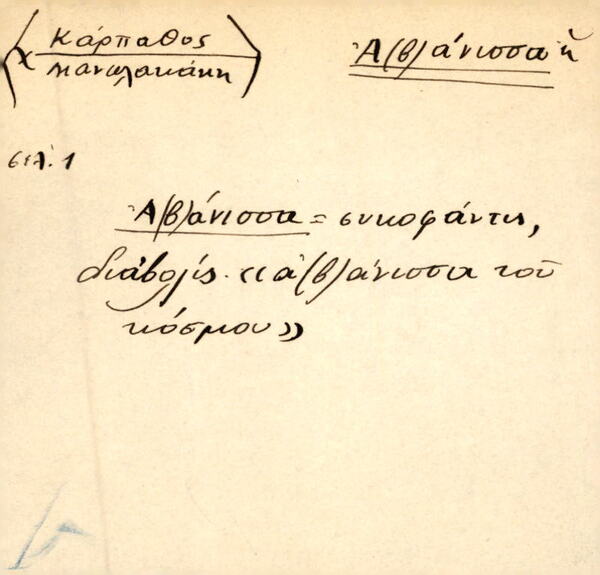 Κάρπαθος
Μανωλακάκη
Ἀ(β)άνισσα ἡ
σελ. 1
Ἀ(β)άνισσα = συκοφάντις,
διάβολις. «ἀ(β)άνισσα τοῦ
κόσμου»